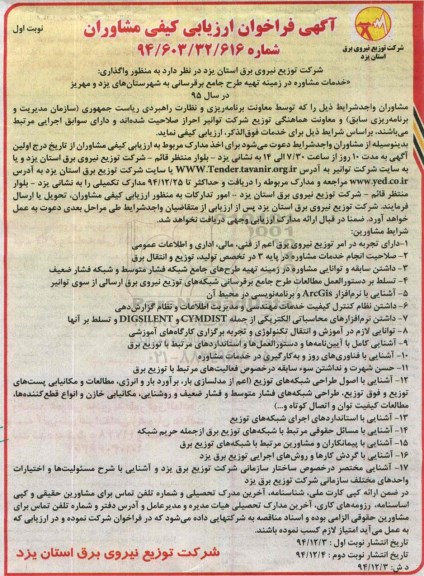 آگهی فراخوان ارزیابی کیفی مشاوران
نوبت اول
شماره ۹۴/۶۰۳/۳۲/۶۱۶
شرکت توزیع نیروی برق
استان یزد
شرکت توزیع نیروی برق استان یزد در نظر دارد به منظور واگذاری:
«خدمات مشاوره در زمینه تهیه طرح جامع برقرسانی به شهرستان‌های یزد و مهریز
در سال ۹۵
مشاوران واجدشرایط ذیل را که توسط معاونت برنامه‌ریزی و نظارت راهبردی ریاست جمهوری (سازمان مدیریت و
برنامه‌ریزی سابق) و معاونت هماهنگی توزیع شرکت توانیر احراز صلاحیت شده‌اند و دارای سوابق اجرایی مرتبط
می‌باشند، براساس شرایط ذیل برای خدمات فوق‌الذکر، ارزیابی کیفی نماید.
بدینوسیله از مشاوران واجدشرایط دعوت می‌شود برای اخذ مدارک مربوط به ارزیابی کیفی مشاوران از تاریخ درج اولین
آگهی به مدت ۱۰ روز از ساعت ۷/۳۰ الی ۱۴ به نشانی یزد - بلوار منتظر قائم - شرکت توزیع نیروی برق استان یزد و یا
به سایت شرکت توانیر به آدرس WWW.Tender.tavanir.org.ir یا سایت شرکت توزیع برق استان یزد به آدرس
www.yed.co.ir مراجعه و مدارک مربوطه را دریافت و حداکثر تا ۹۴/۱۲/۲۵ مدارک تکمیلی را به نشانی یزد - بلوار
منتظر قائم - شرکت توزیع نیروی برق استان یزد - امور تدارکات به منظور ارزیابی کیفی مشاوران، تحویل یا ارسال
فرمایند. شرکت توزیع نیروی برق استان یزد پس از ارزیابی از متقاضیان واجدشرایط طی مراحل بعدی دعوت به عمل
خواهد آورد. ضمنا در قبال ارائه مدارک ارزیابی وجهی دریافت نخواهد شد.
شرایط مشاورین:
۱-دارای تجربه در امر توزیع نیروی برق اعم از فنی، مالی، اداری و اطلاعات عمومی
۲- صلاحیت انجام خدمات مشاوره در پایه ۳ در تخصص تولید، توزیع و انتقال برق
۳- داشتن سابقه و توانایی مشاوره در زمینه تهیه طرح‌های جامع شبکه فشار متوسط و شبکه فشار ضعیف
۴- تسلط بر دستورالعمل مطالعات طرح جامع برقرسانی شبکه‌های توزیع نیروی برق ارسالی از سوی توانیر
۵- آشنایی با نرم‌افزار ArcGis و برنامه‌نویسی در محیط آن
۶- داشتن نظام کنترل کیفیت خدمات مهندسی و مدیریت اطلاعات و نظام گزارش‌دهی
۷- داشتن نرم‌افزارهای محاسباتی الکتریکی از جمله CYMDIST و DIGSILENT و تسلط بر آنها
۸- توانایی لازم در آموزش و انتقال تکنولوژی و تجربه برگزاری کارگاه‌های آموزشی
۹- آشنایی کامل با آیین‌نامه‌ها و دستورالعمل‌ها و استانداردهای مرتبط با توزیع برق
۱۰- آشنایی با فناوری‌های روز و به‌کارگیری در خدمات مشاوره
۱۱- حسن شهرت و نداشتن سوء سابقه درخصوص فعالیت‌های مرتبط با توزیع برق
۱۲- آشنایی با اصول طراحی شبکه‌های توزیع (اعم از مدلسازی بار، برآورد بار و انرژی، مطالعات و مکانیابی پست‌های
توزیع و فوق توزیع، طراحی شبکه‌های فشار متوسط و فشار ضعیف و روشنایی، مکانیابی خازن و انواع قطع‌کننده‌ها،
مطالعات کیفیت توان و اتصال کوتاه و...)
۱۳- آشنایی با استانداردهای اجرای شبکه‌های توزیع
۱۴- آشنایی با مسائل حقوقی مرتبط با شبکه‌های توزیع برق ازجمله حریم شبکه
۱۵- آشنایی با پیمانکاران و مشاورین مرتبط با شبکه‌های توزیع برق
۱۶- آشنایی با گردش کارها و روش‌های اجرایی توزیع برق یزد
۱۷- آشنایی مختصر درخصوص ساختار سازمانی شرکت توزیع برق یزد و آشنایی با شرح مسئولیت‌ها و اختیارات
واحدهای مختلف سازمانی شرکت توزیع برق استان یزد
در ضمن ارائه کپی کارت ملی، شناسنامه، آخرین مدرک تحصیلی و شماره تلفن تماس برای مشاورین حقیقی و کپی
اساسنامه، رزومه‌های کاری، آخرین مدارک تحصیلی هیات مدیره و مدیرعامل و آدرس دفتر و شماره تلفن تماس برای
مشاورین حقوقی الزامی بوده و اسناد مناقصه به شرکتهایی داده می‌شود که در فراخوان شرکت نموده و در ارزیابی که
به عمل می‌آید امتیاز لازم کسب نموده باشند.
تاریخ انتشار نوبت اول : ۹۴/۱۲/۳
تاریخ انتشار نوبت دوم : ۹۴/۱۲/۴
د ش: ۹۴/۱۲/۳
شرکت توزیع نیروی برق استان یزد